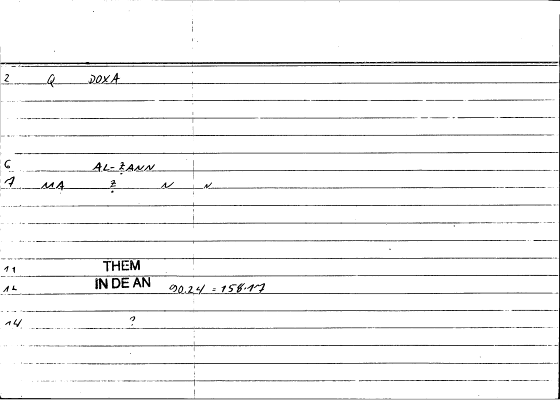 2 Q DOXA
6 AL-ẒANN
7 MA Ẓ N N
11 THEM
12 IN DE AN 90.24 = 158.17
14 ?